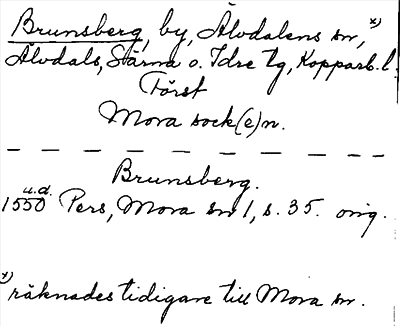 Brunsberg, by, Älvdalens sn, x)
Älvdals, Särna o. Idre tg, Kopparb. l.
Först
Mora sock(e)n.
Brunsberg.
1550 u.d. Pers, Mora sn 1, s. 35. orig.
x) räknades tidigare till Mora sn.